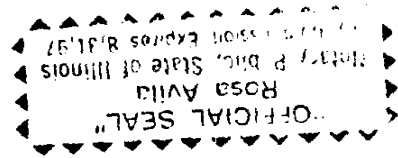 "OFFICIAL SEAL"
Rosa Avila
Notary Public, State of Illinois
My Commission Expires 8/31/97